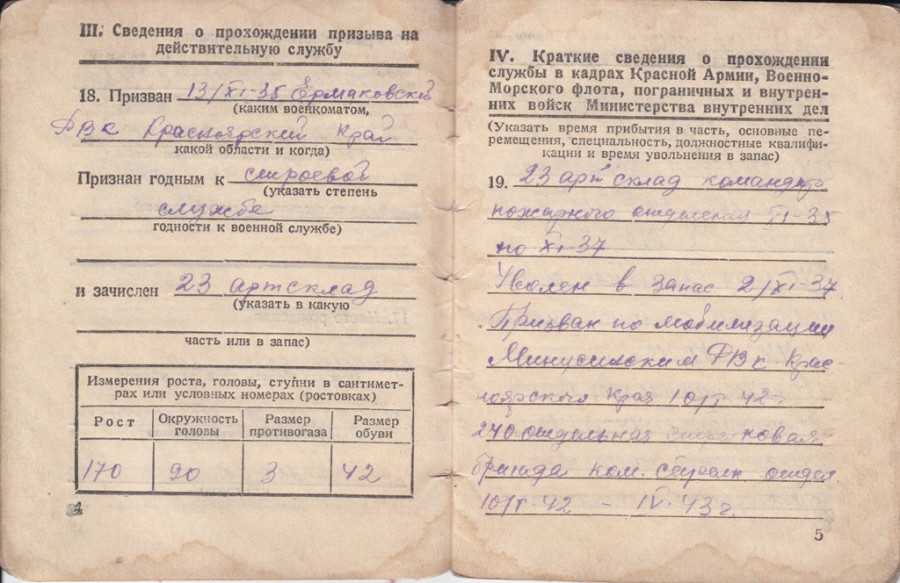 III. Сведения о прохождении призыва на
действительную службу
18. Призван 13/XI-35 Ермаковский
(каким военкоматом,
РВК Красноярский Край
какой области и когда)
Признан годным к строевой
(указать степень
службе
годности к военной службе)
и зачислен 23 артсклад
(указать в какую
часть или в запас)
Измерения роста, головы, ступни в сантимет-
рах или условных номерах (ростовках)
Рост Окружность головы Размер противогаза Размер обуви
170 90 3 42
4
IV. Краткие сведения о прохождении
службы в кадрах Красной Армии, Военно-
Морского флота, пограничных и внутрен-
них войск Министерства внутренних дел
(Указать время прибытия в часть, основные пе-
ремещения, специальность, должностные квалифи-
кации и время увольнения в запас)
19. 23 арт склад командир
пожарного отделения XI-35
по XI-37
Уволен в запас 2/XI-37
Призван по мобилизации
Минусинским РВК Крас-
ноярского Края 10/I-42
240 отдельная стрелковая
бригада ком. стрелк отдел
10/I-42 - IV-43г.
5